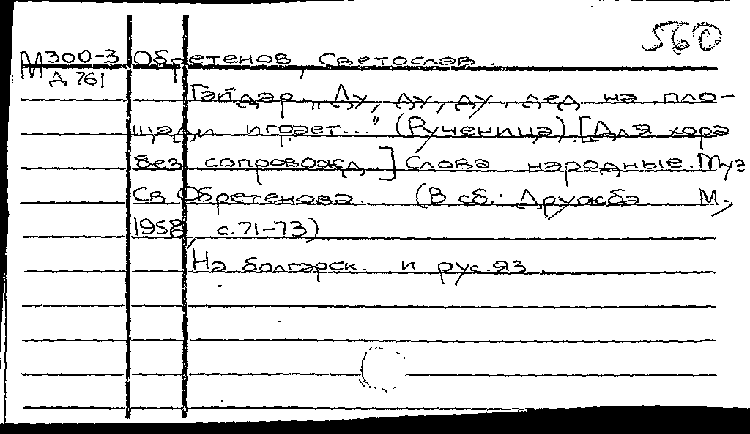 560
М300-3 Обретенов, Светослав.
Д 761
Гайдар „Ду, ду, ду, дед на пло-
щади играет..." (Рученица). [Для хора
без сопровожд.] Слова народные. Муз.
Св. Обретенова. (В сб.: Дружба. М.,
1958, с. 71-73)
На болгарск. и рус. яз.